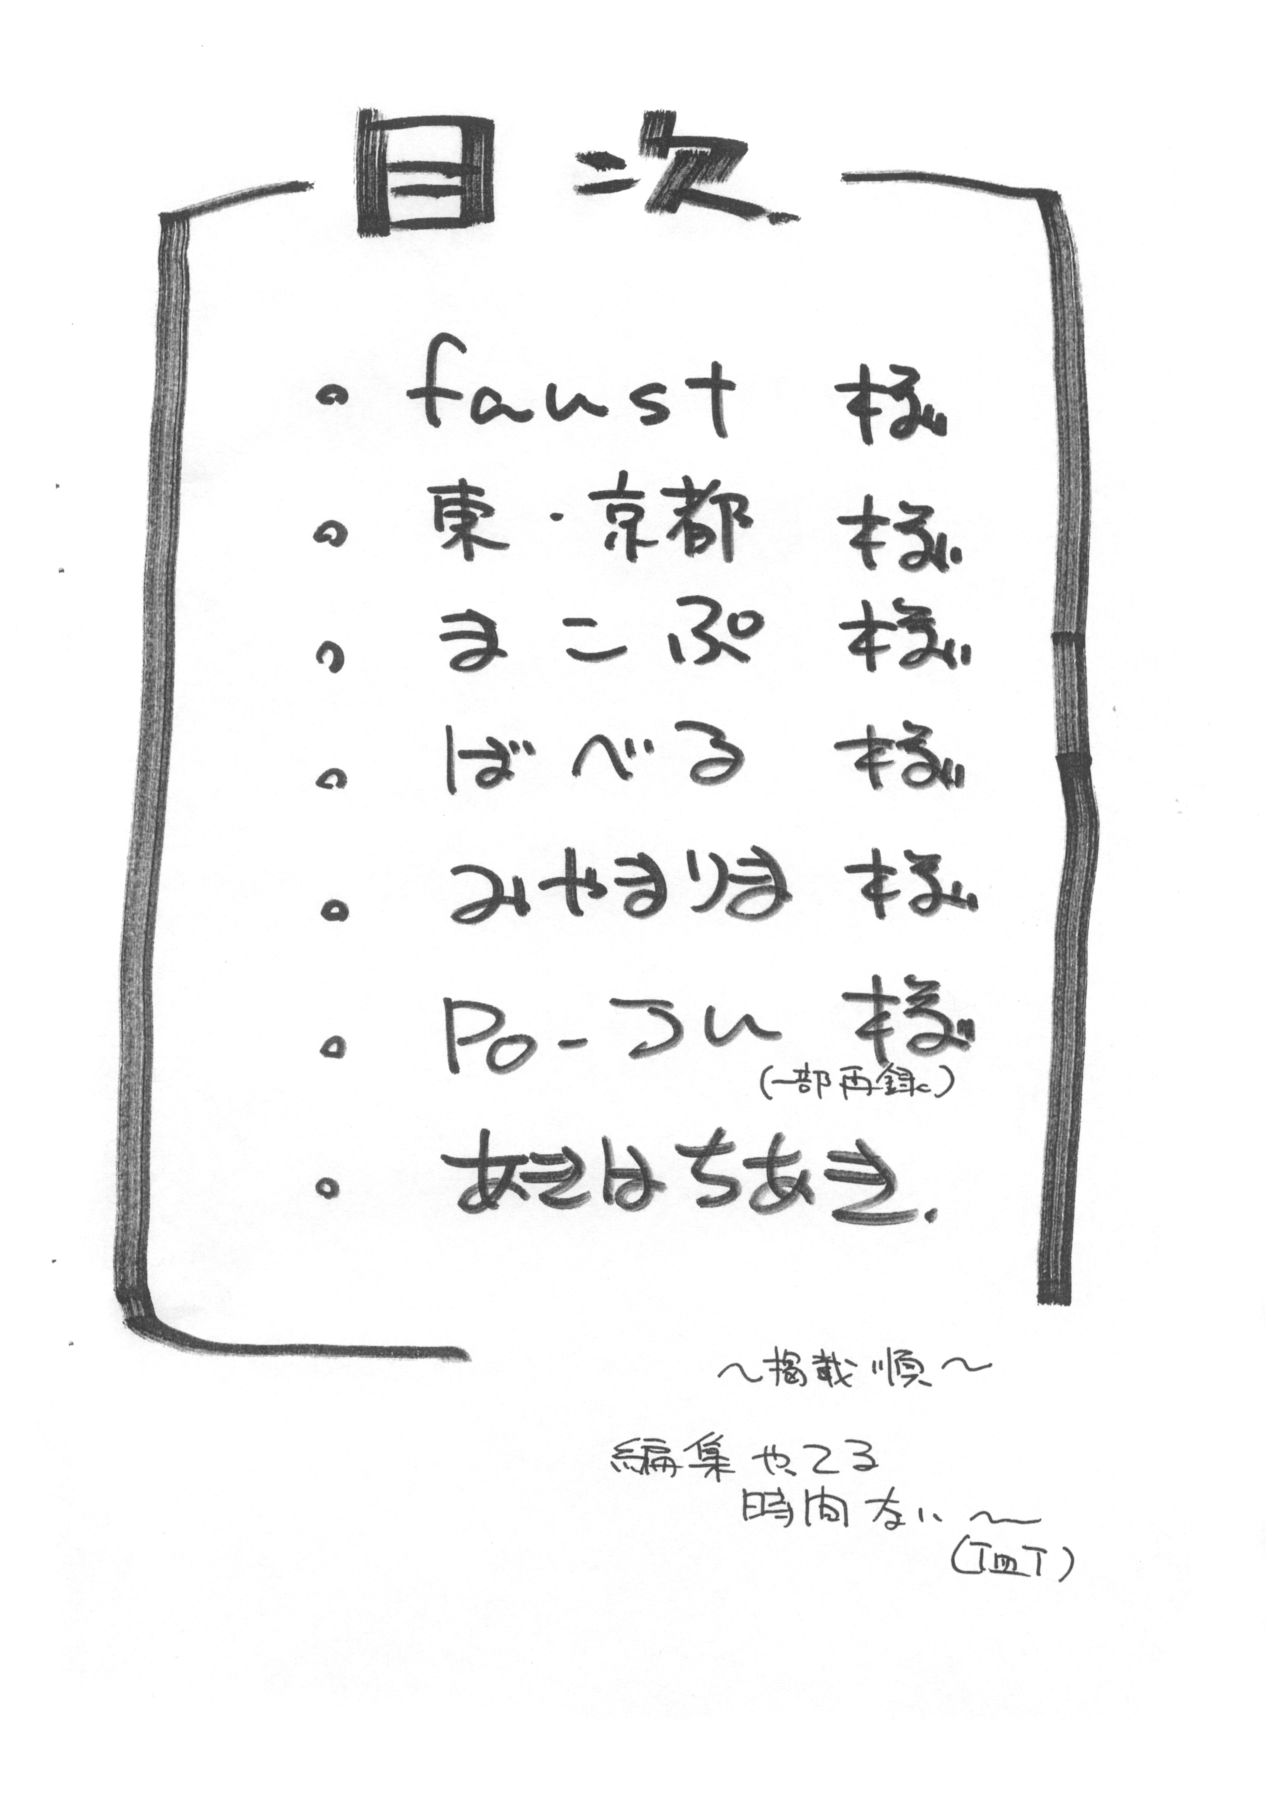 目次
・faust 様
・東・京都 様
・まこぷ 様
・ばべる 様
・みやまりま 様
・Po-づい 様
(一部再録)
・あきはちあき.
～掲載順～
編集やってる
時間ない～
(T皿T)